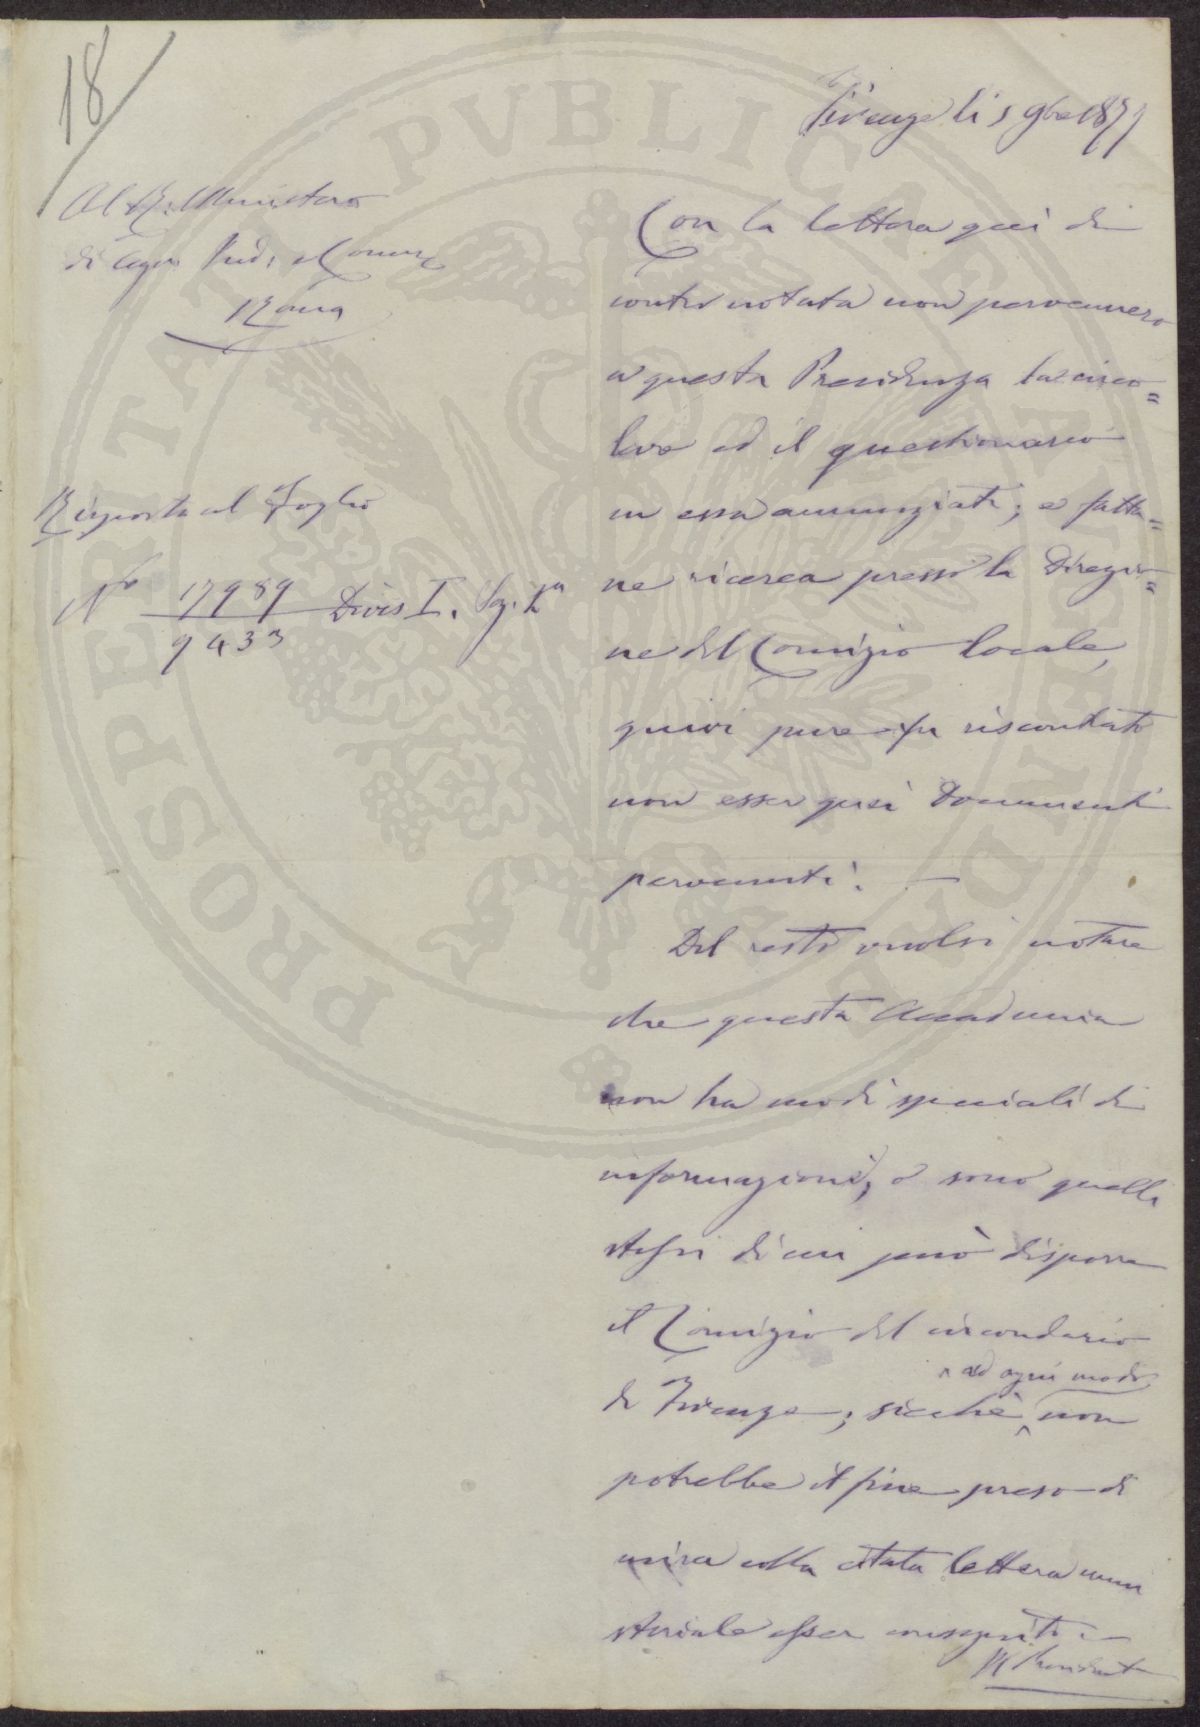 18
Firenze li 5 9bre 1879
Al R. Ministero
di Agr. Ind. e Comm.
Roma
Risposta al Foglio
N° 17989 Divis I. Sez. 1a
9433
Con la lettera qui di
contro notata non pervennero
a questa Presidenza la circo=
lare ed il questionario
in essa annunziati; e fatta=
ne ricerca presso la Direzio=
ne del Comizio locale,
quivi pure fu riscontrato
non esser quei Documenti
pervenuti. —
Del resto vuolsi notare
che questa Accademia
non ha modi speciali di
informazioni, e sono quelli
stessi di cui può disporre
il Comizio del circondario
di Firenze; sicchè ad ogni modo non
potrebbe il fine preso di
mira colla citata lettera mini
steriale esser conseguito. —
Il Presidente
PROSPERITATI PVBLICAE AVGENDAE